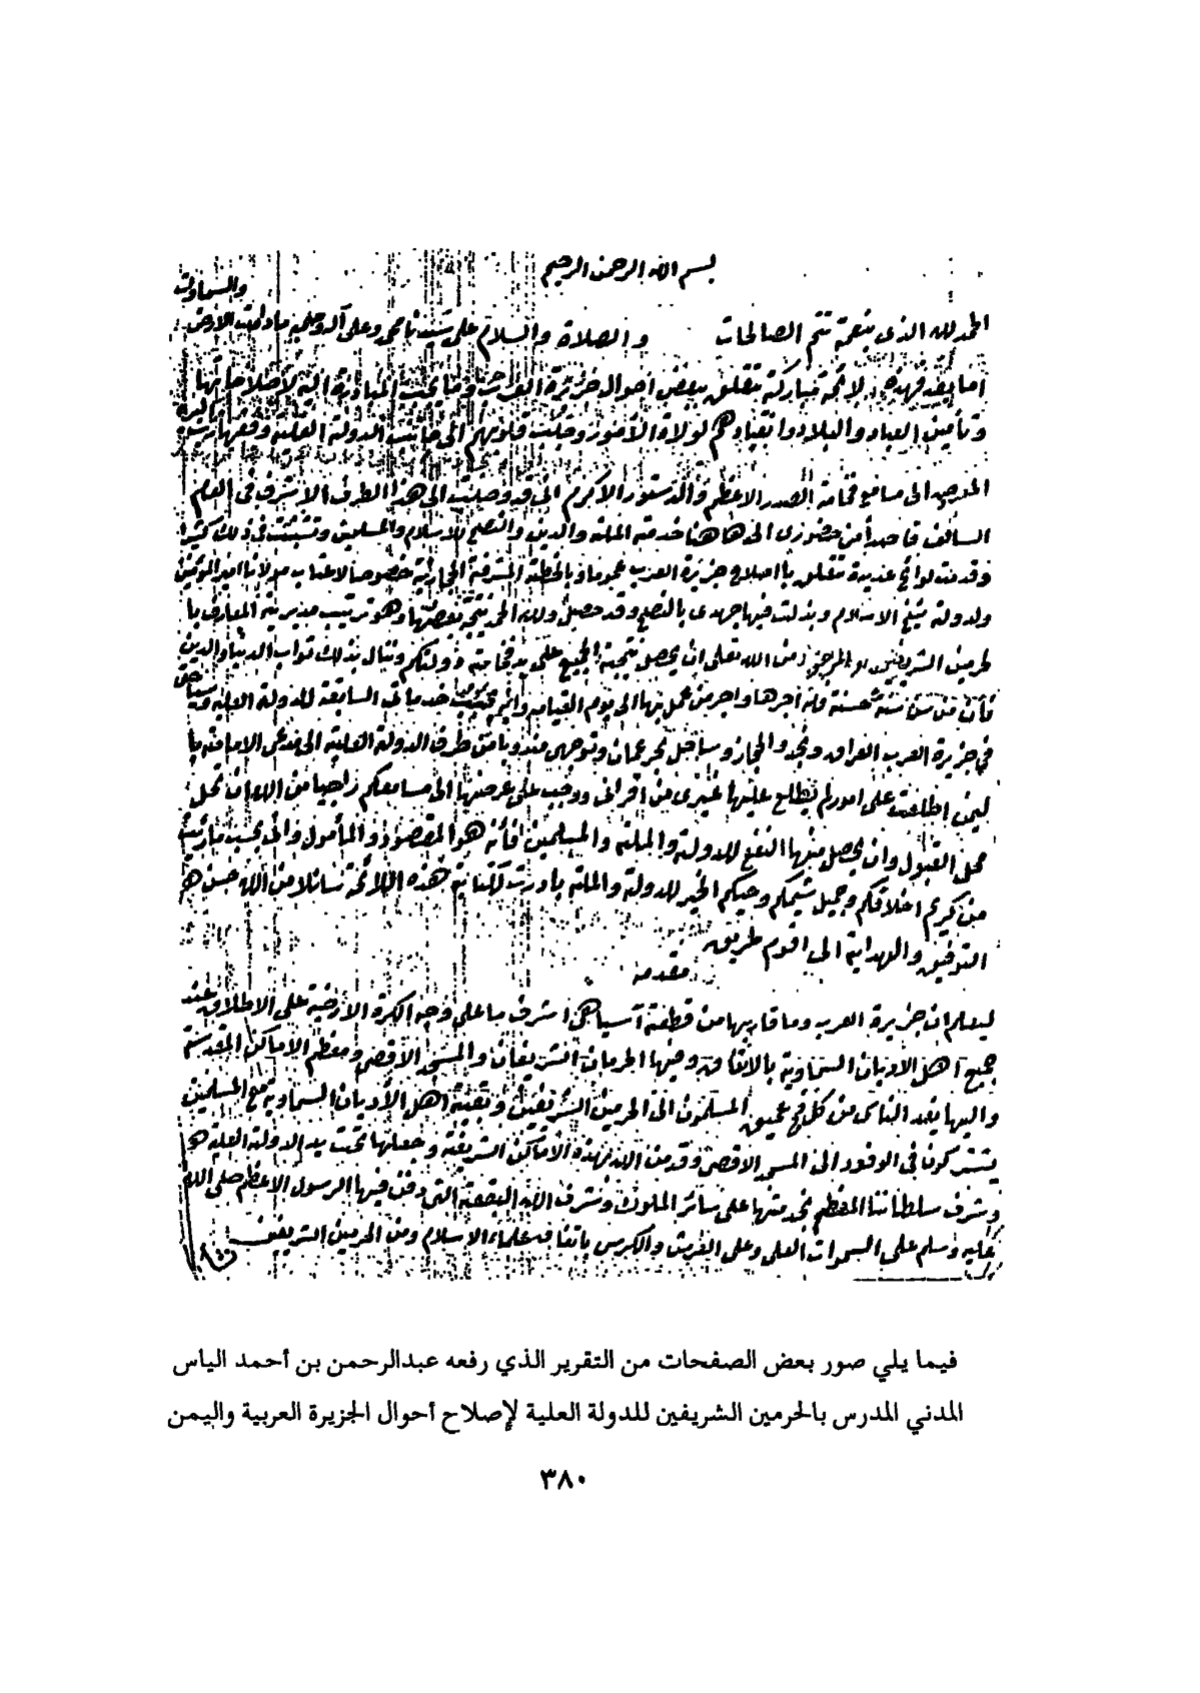 بسم الله الرحمن الرحيم
والسماوات
الحمد لله الذى بنعمته تتم الصالحات والصلاة والسلام على سيدنا محمد وعلى آله وصحبه ما دامت الارض
اما بعد فهذه لائحة مباركة تتعلق ببعض احوال جزيرة العرب وما يجب المبادرة اليه لاصلاحاتها
وتأمين العباد والبلاد وانقيادهم لولاة الأمور وجلب قلوبهم الى جانب الدولة العلية
المعروض الى مسامع فخامة الصدر الاعظم والدستور الأكرم انى قد وصلت الى هذا الطرف الاشرف فى العام
السالف قاصدا من حضورى الى هاهنا خدمة الملة والدين والنصح للاسلام والمسلمين وتشبثت فى ذلك كثيرا
وقدمت لوائح عديدة تتعلق باصلاح جزيرة العرب عموما وبالخطة المشرفة الحجازية خصوصا لاعتاب مولانا امير المؤمنين
ولدولة شيخ الاسلام وبذلت فيها جهدى بالنصح وقد حصل ولله الحمد نتيجة بعضها وهو ترتيب مديرية المعارف با
لحرمين الشريفين والمرجو من الله تعلى ان يحصل نتيجة الجميع على يد فخامة دولتكم وتنال بذلك ثواب الدنيا والدين
فأن من سن سنة حسنة فله أجرها واجر من عمل بها الى يوم القيامه خدماتى السابقة للدولة العلية
فى جزيرة العرب العراق ونجد والحجاز وساحل بحر عمان وتوجهى مندوبا من طرف الدولة العلية الى مدعى الإمامة با
ليمن اطلعت على امور لم يطلع عليها غيرى من أقرانى ووجب على عرضها الى مسامعكم راجيا من الله ان تحل
محل القبول وان يحصل منها النفع للدولة والملة والمسلمين فأنه هو المقصود والمأمول وانى بحسب ما رأيت
من كريم اخلاقكم وجميل شيمكم وحبكم الخير للدولة والملة بادرت لكتابة هذه اللائحة سائلا من الله حسن
التوفيق والهداية الى اقوم طريق
مقدمه
ليعلم ان جزيرة العرب وما قاربها من قطعة آسيا هى اشرف ما على وجه الكرة الارضية على الاطلاق عند
جميع اهل الاديان السماوية بالاتفاق وفيها الحرمان الشريفان والمسجد الاقصى ومعظم الاماكن المقدسة
واليها يفد الناس من كل فج عميق المسلمون الى الحرمين الشريفين وبقية أهل الأديان السماوية مع المسلمين
يشتركون فى الوفود الى المسجد الاقصى وقد من الله بهذه الأماكن الشريفة وجعلها تحت يد الدولة العلية
وشرف سلطاننا المعظم بخدمتها على سائر الملوك وشرف الله البقعة التى دفن فيها الرسول الاعظم صلى الله
عليه وسلم على السموات العلى وعلى العرش والكرسى باتفاق علماء الاسلام ومن الحرمين الشريفين
فيما يلي صور بعض الصفحات من التقرير الذي رفعه عبدالرحمن بن أحمد الياس
المدني المدرس بالحرمين الشريفين للدولة العلية لإصلاح أحوال الجزيرة العربية واليمن
٣٨٠